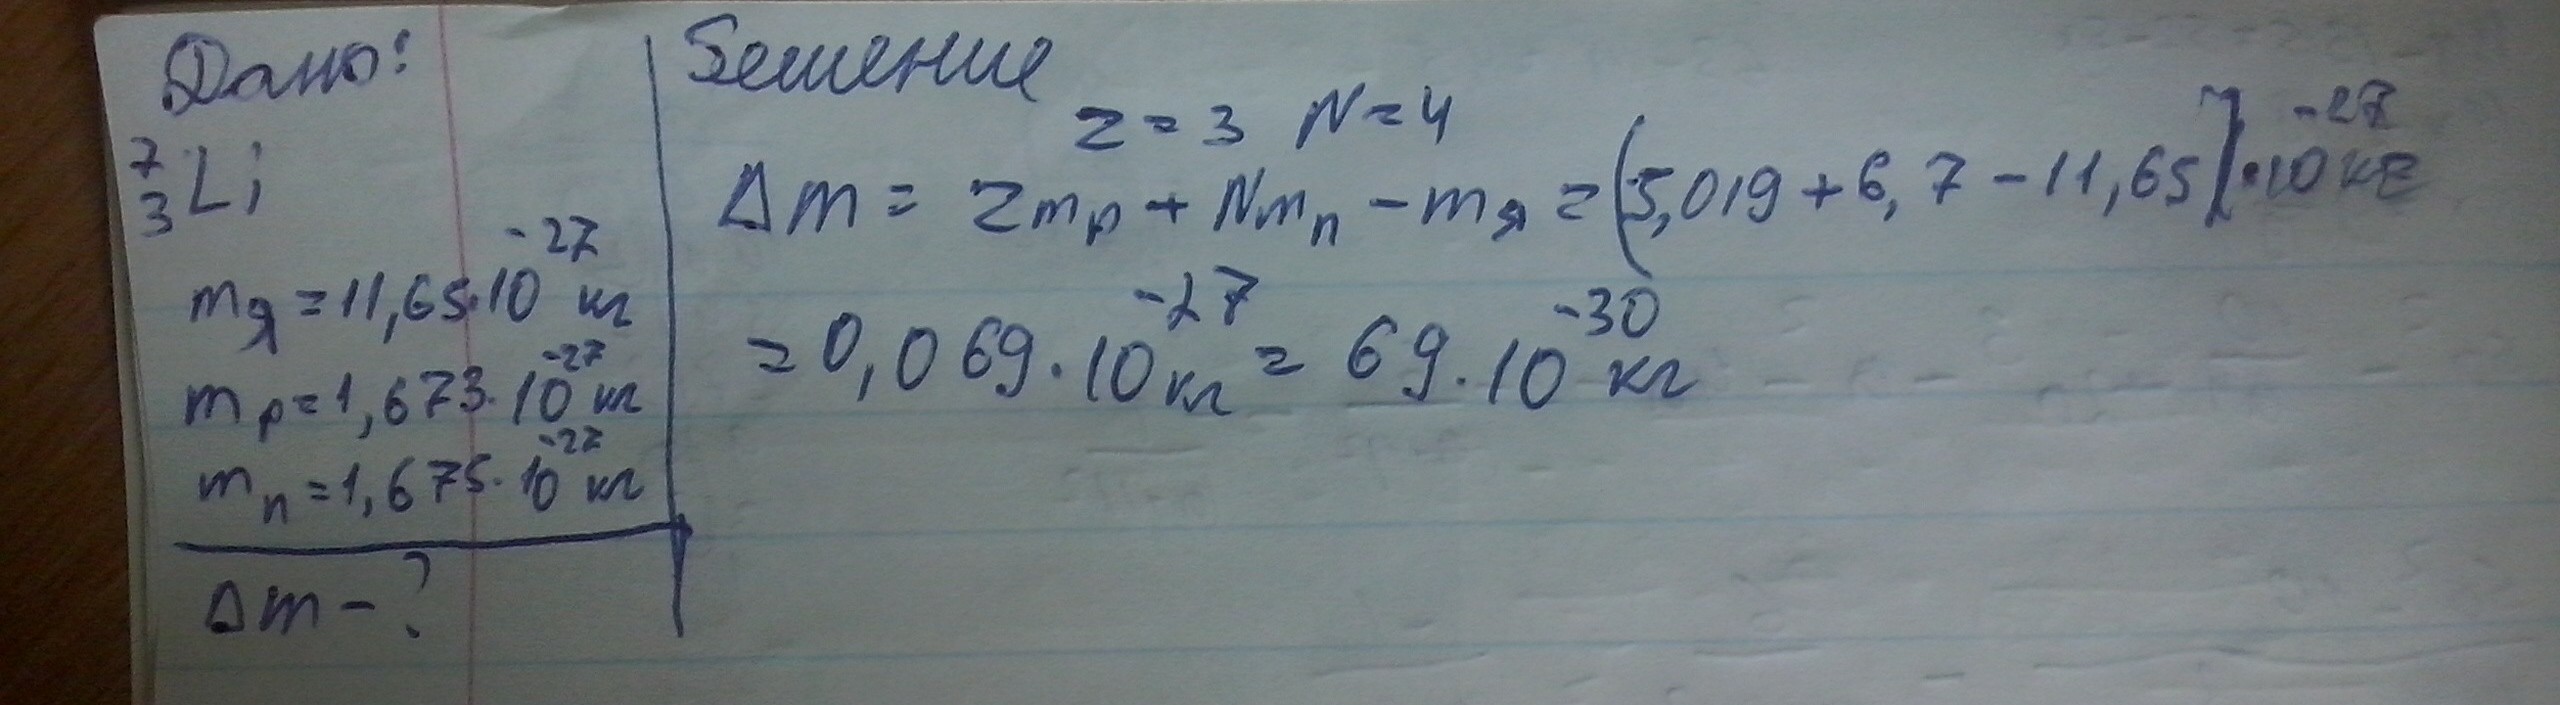 Дано:
⁷₃Li
mя = 11,65·10⁻²⁷ кг
mp = 1,673·10⁻²⁷ кг
mn = 1,675·10⁻²⁷ кг
Δm - ?
Решение
Z = 3 N = 4
Δm = Zmp + Nmn - mя = (5,019 + 6,7 - 11,65)·10⁻²⁷ кг
= 0,069·10⁻²⁷ кг = 69·10⁻³⁰ кг